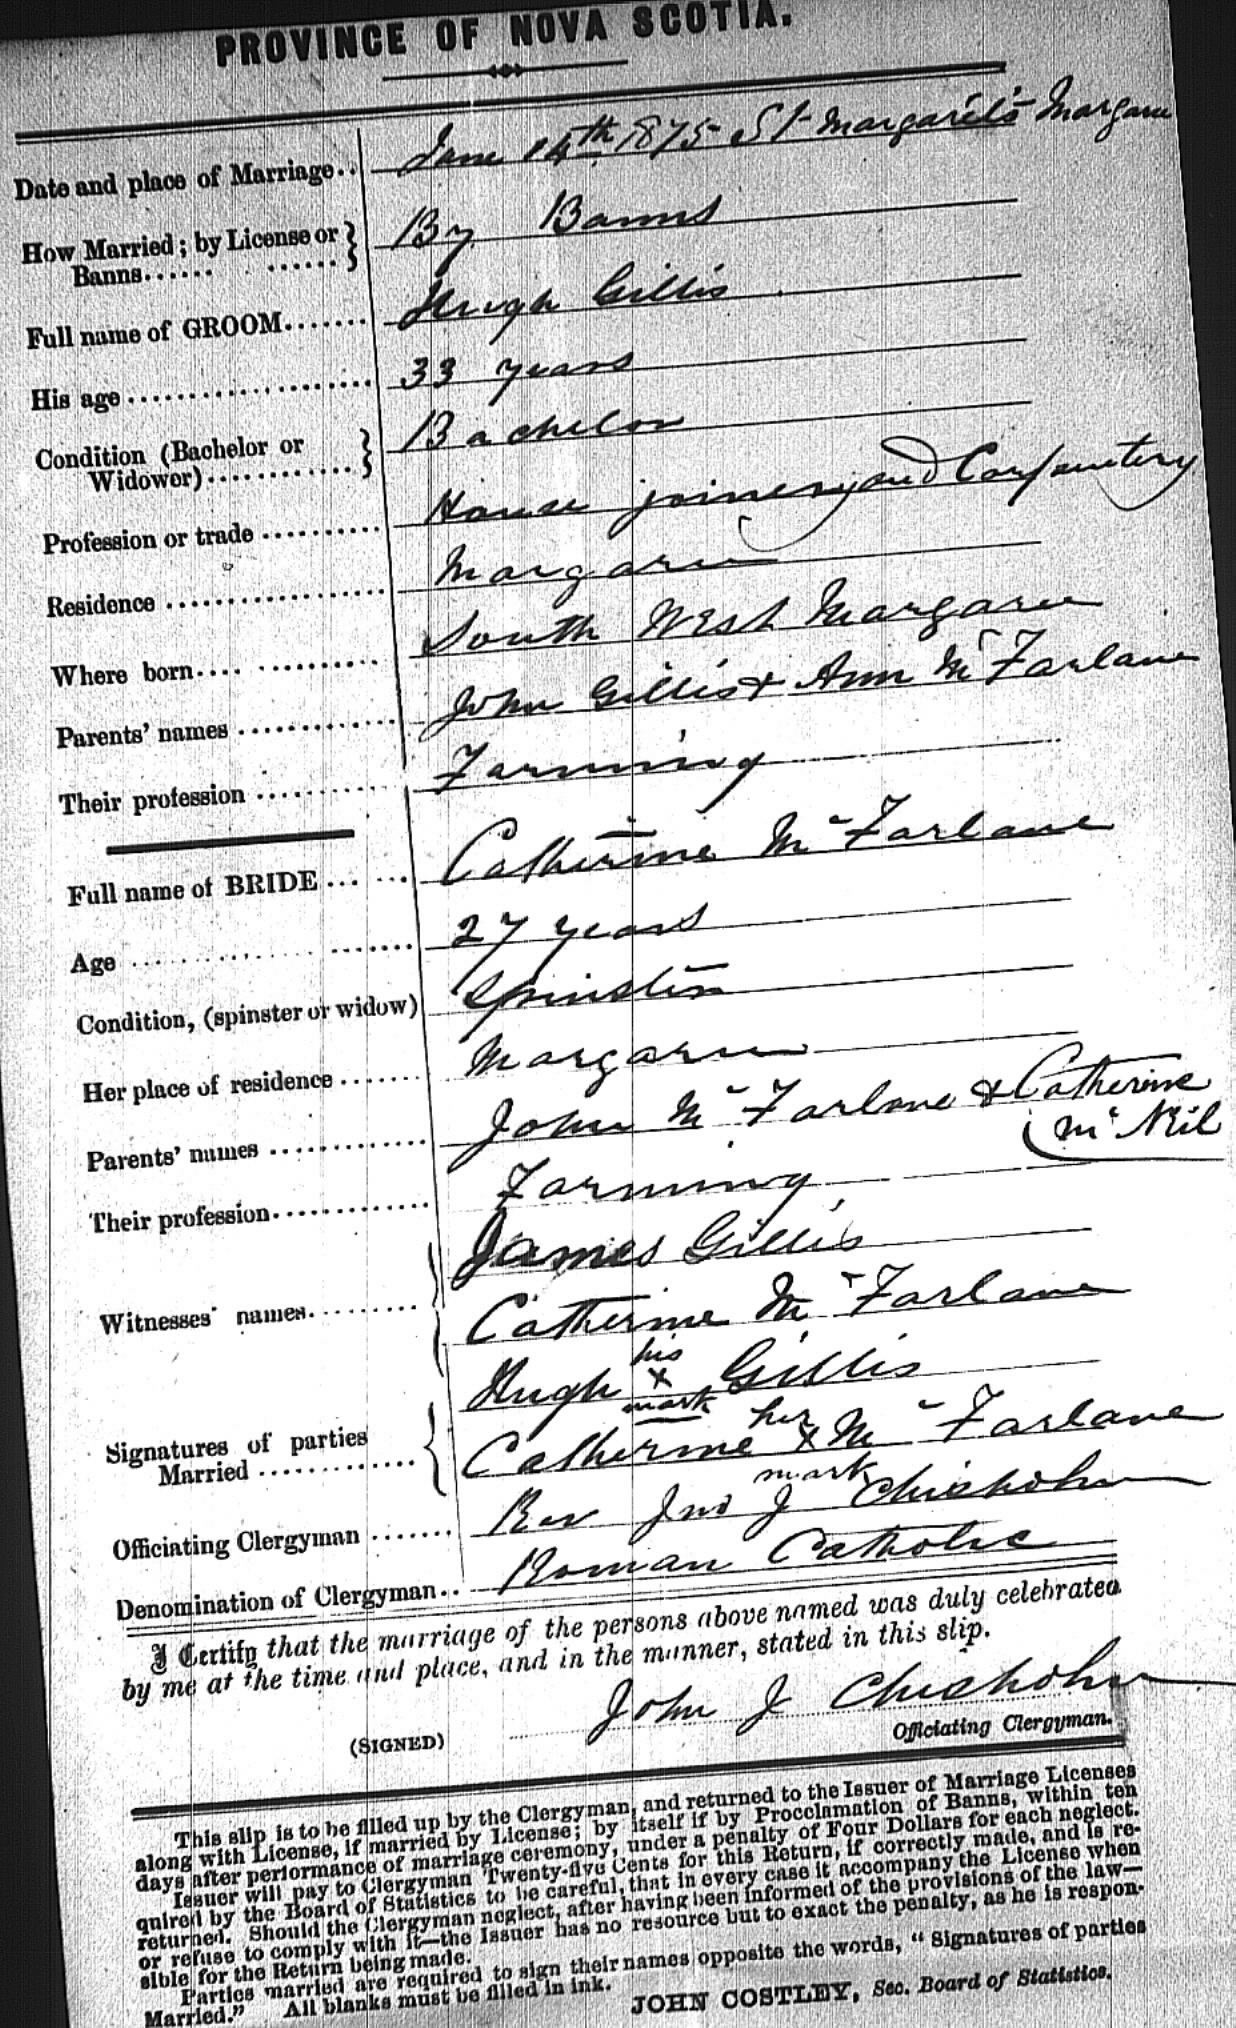 PROVINCE OF NOVA SCOTIA.
Date and place of Marriage.. June 14th 1875 St Margaret's Margaree
How Married; by License or Banns...... ...... By Banns
Full name of GROOM....... Hugh Gillis
His age .................... 33 years
Condition (Bachelor or Widower)............. Bachelor
Profession or trade .......... House joinery and Carpentery
Residence .................. Margaree
Where born.... .......... South West Margaree
Parents' names ............ John Gillis & Ann Mc Farlane
Their profession ........... Farming
Full name of BRIDE ... ... Catherine Mc Farlane
Age ..................... 27 years
Condition, (spinster or widow) Spinster
Her place of residence ....... Margaree
Parents' names ............ John Mc Farlane & Catherine
Mc Neil
Their profession............. Farming
James Gillis
Witnesses' names.......... Catherine Mc Farlane
his
Hugh x Gillis
mark
her
Signatures of parties Married ............. Catherine x Mc Farlane
mark
Officiating Clergyman ....... Rev Jno J Chisholm
Denomination of Clergyman.. Roman Catholic
I Certify that the marriage of the persons above named was duly celebrated
by me at the time and place, and in the manner, stated in this slip.
(SIGNED) John J Chisholm
Officiating Clergyman.
This slip is to be filled up by the Clergyman, and returned to the Issuer of Marriage Licenses
along with License, if married by License; by itself if by Procclamation of Banns, within ten
days after performance of marriage ceremony, under a penalty of Four Dollars for each neglect.
Issuer will pay to Clergyman Twenty-five Cents for this Return, if correctly made, and is re-
quired by the Board of Statistics to be careful, that in every case it accompany the License when
returned. Should the Clergyman neglect, after having been informed of the provisions of the law—
or refuse to comply with it—the Issuer has no resource but to exact the penalty, as he is respon-
sible for the Return being made.
Parties married are required to sign their names opposite the words, "Signatures of parties
Married." All blanks must be filled in ink.
JOHN COSTLEY, Sec. Board of Statistics.